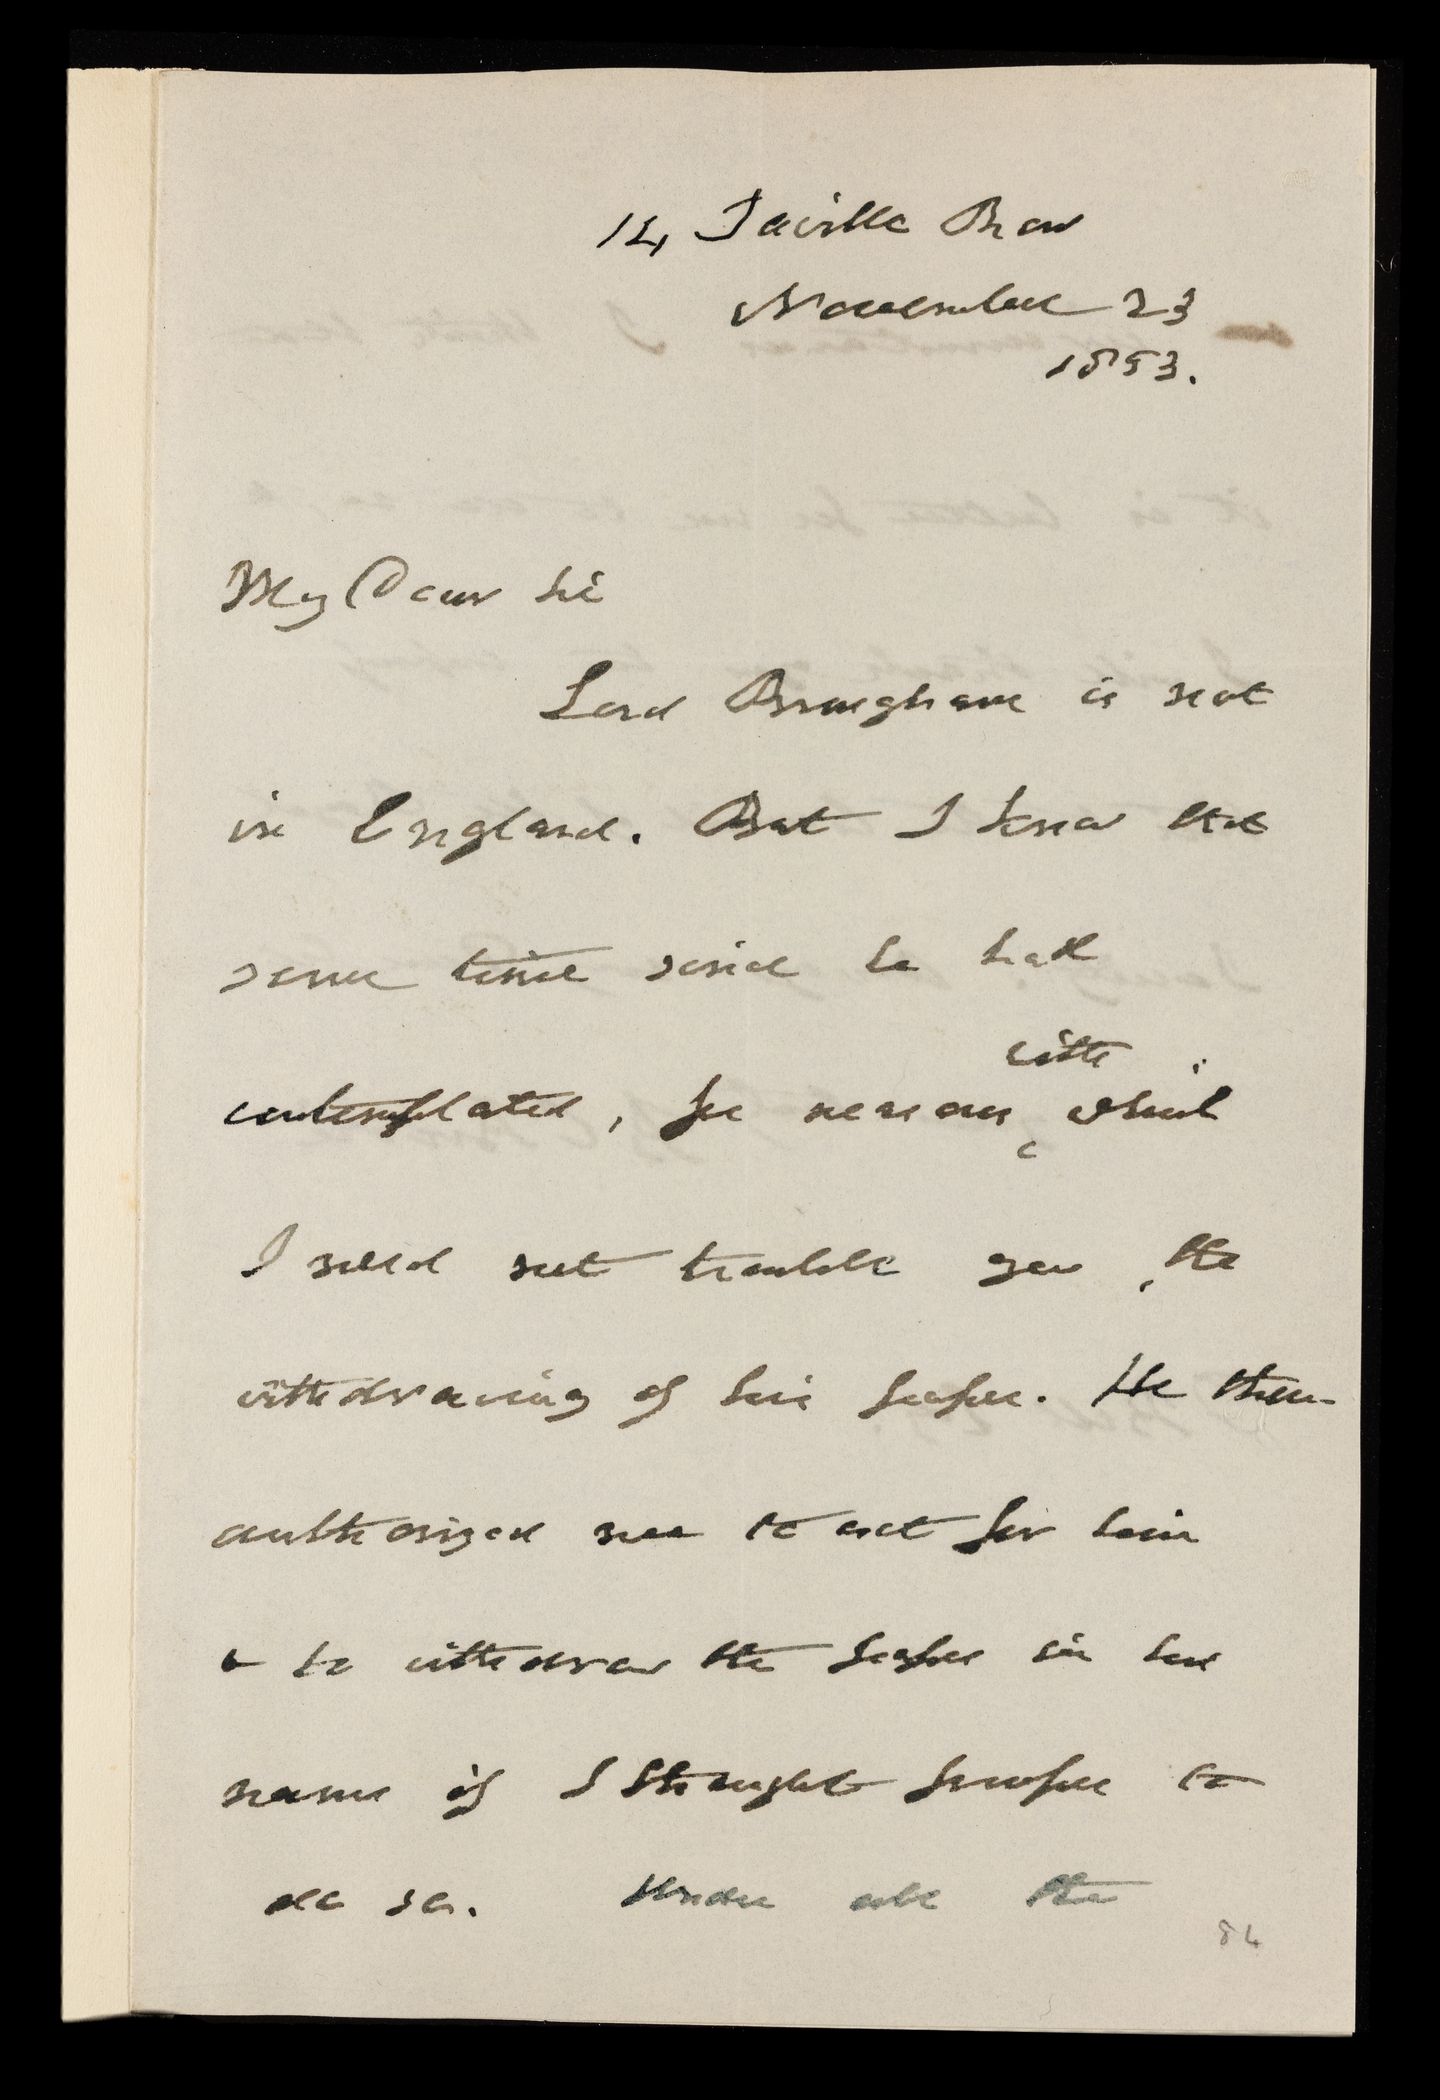 14 Saville Row
November 23
1853.
My Dear Sir
Lord Brougham is not
in England. But I know that
some time since he had
contemplated, for reasons with which
I need not trouble you, the
withdrawing of his paper. He then
authorized me to act for him
& to withdraw the paper in his
name if I thought proper to
do so. Under all the
84